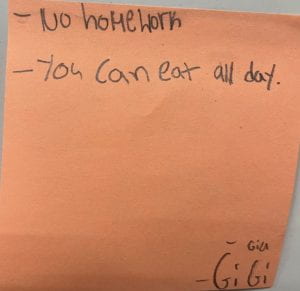 - No homework
- You can eat all day.
- Gigi
- GiGi